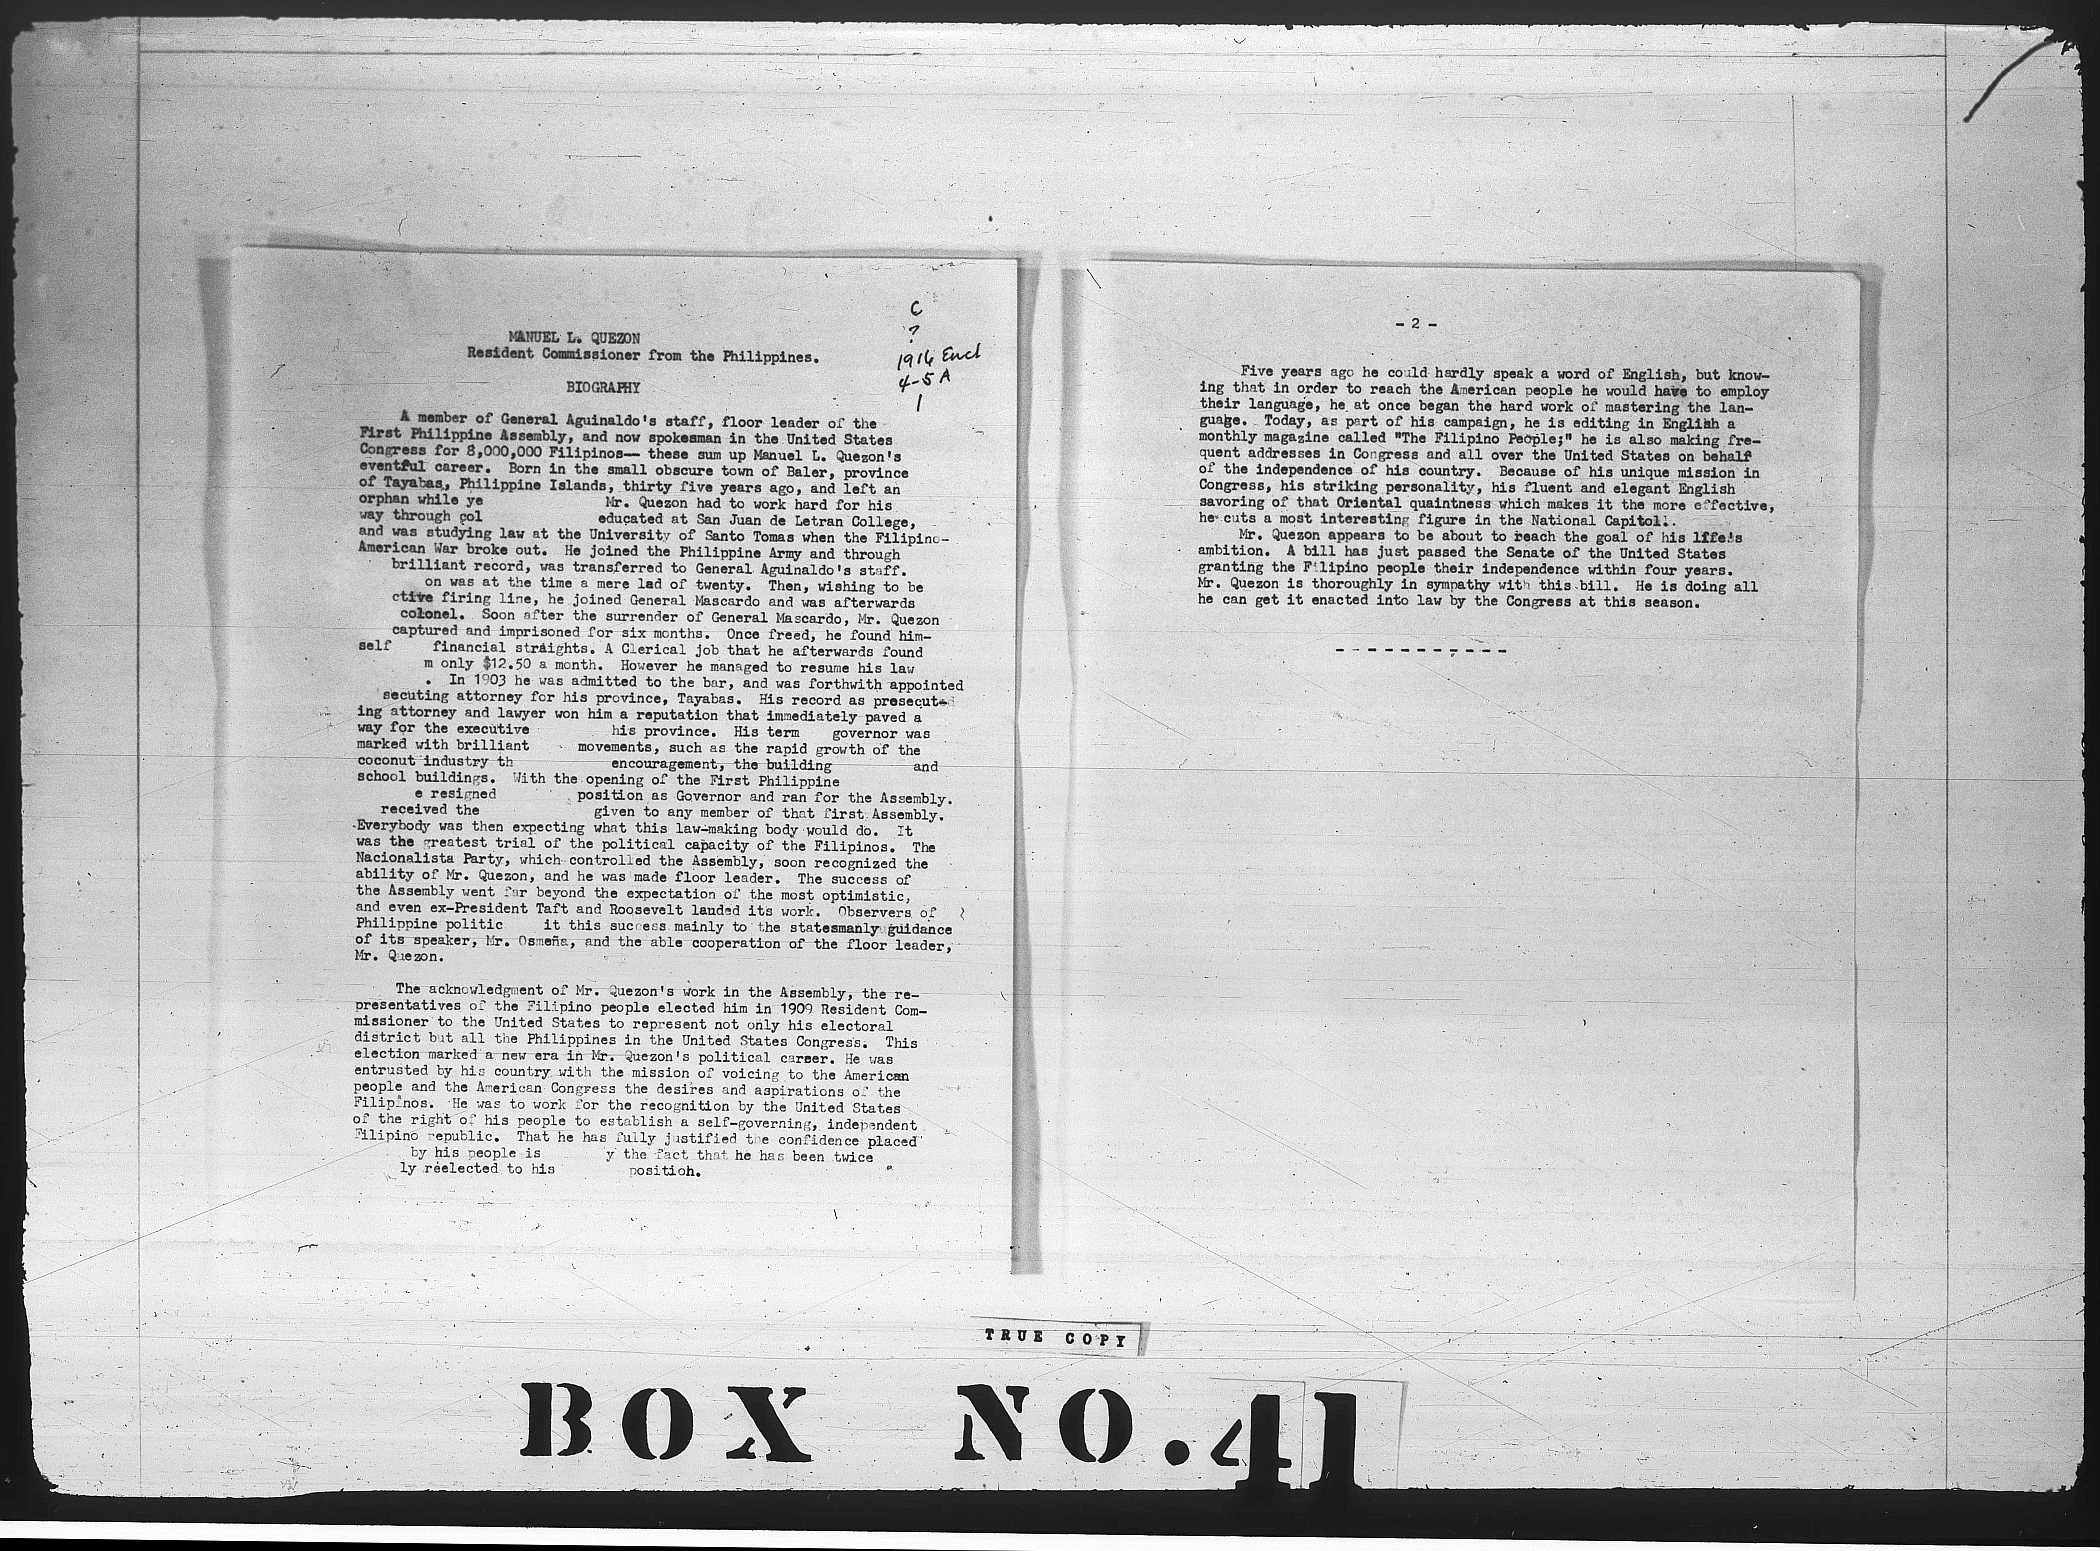 C
?
1916 Encl
4-5 A
1
MANUEL L. QUEZON
Resident Commissioner from the Philippines.
BIOGRAPHY
A member of General Aguinaldo's staff, floor leader of the
First Philippine Assembly, and now spokesman in the United States
Congress for 8,000,000 Filipinos-- these sum up Manuel L. Quezon's
eventful career. Born in the small obscure town of Baler, province
of Tayabas, Philippine Islands, thirty five years ago, and left an
orphan while ye Mr. Quezon had to work hard for his
way through col educated at San Juan de Letran College,
and was studying law at the University of Santo Tomas when the Filipino-
American War broke out. He joined the Philippine Army and through
brilliant record, was transferred to General Aguinaldo's staff.
on was at the time a mere lad of twenty. Then, wishing to be
ctive firing line, he joined General Mascardo and was afterwards
colonel. Soon after the surrender of General Mascardo, Mr. Quezon
captured and imprisoned for six months. Once freed, he found him-
self financial straights. A Clerical job that he afterwards found
m only $12.50 a month. However he managed to resume his law
. In 1903 he was admitted to the bar, and was forthwith appointed
secuting attorney for his province, Tayabas. His record as presecut
ing attorney and lawyer won him a reputation that immediately paved a
way for the executive his province. His term governor was
marked with brilliant movements, such as the rapid growth of the
coconut industry th encouragement, the building and
school buildings. With the opening of the First Philippine
e resigned position as Governor and ran for the Assembly.
received the given to any member of that first Assembly.
Everybody was then expecting what this law-making body would do. It
was the greatest trial of the political capacity of the Filipinos. The
Nacionalista Party, which controlled the Assembly, soon recognized the
ability of Mr. Quezon, and he was made floor leader. The success of
the Assembly went far beyond the expectation of the most optimistic,
and even ex-President Taft and Roosevelt lauded its work. Observers of
Philippine politic it this success mainly to the statesmanly guidance
of its speaker, Mr. Osmeña, and the able cooperation of the floor leader,
Mr. Quezon.
The acknowledgment of Mr. Quezon's work in the Assembly, the re-
presentatives of the Filipino people elected him in 1909 Resident Com-
missioner to the United States to represent not only his electoral
district but all the Philippines in the United States Congress. This
election marked a new era in Mr. Quezon's political career. He was
entrusted by his country with the mission of voicing to the American
people and the American Congress the desires and aspirations of the
Filipinos. He was to work for the recognition by the United States
of the right of his people to establish a self-governing, independent
Filipino republic. That he has fully justified the confidence placed
by his people is y the fact that he has been twice
ly reelected to his position.
- 2 -
Five years ago he could hardly speak a word of English, but know-
ing that in order to reach the American people he would have to employ
their language, he at once began the hard work of mastering the lan-
guage. Today, as part of his campaign, he is editing in English a
monthly magazine called "The Filipino People;" he is also making fre-
quent addresses in Congress and all over the United States on behalf
of the independence of his country. Because of his unique mission in
Congress, his striking personality, his fluent and elegant English
savoring of that Oriental quaintness which makes it the more effective,
he cuts a most interesting figure in the National Capitol.
Mr. Quezon appears to be about to reach the goal of his life's
ambition. A bill has just passed the Senate of the United States
granting the Filipino people their independence within four years.
Mr. Quezon is thoroughly in sympathy with this bill. He is doing all
he can get it enacted into law by the Congress at this season.
- - - - - - - - - - -
TRUE COPY
BOX NO. 41